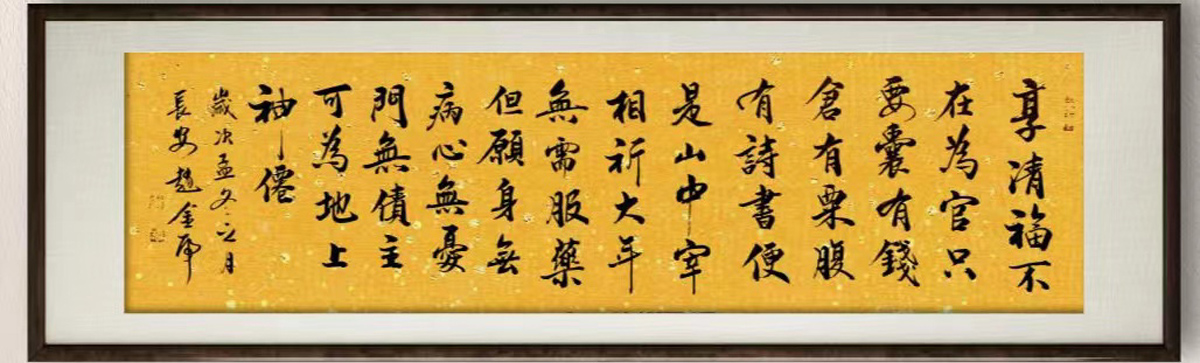 享清福不
在為官只
要囊有錢
倉有粟腹
有詩書便
是山中宰
相祈大年
無需服藥
但願身無
病心無憂
門無債主
可為地上
神僊
歲次孟冬之月
長安趙金虎